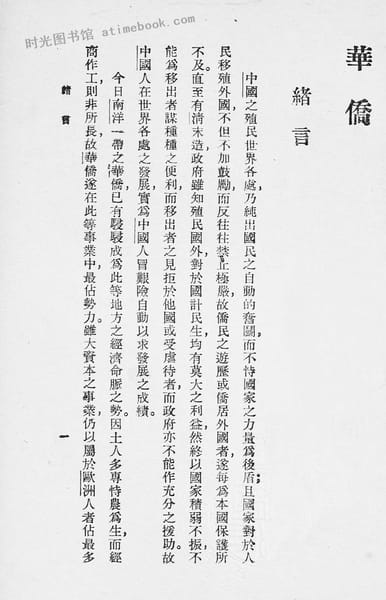 时光图书馆 atimebook.com
華僑
緒言
中國之殖民世界各處,乃純出國民之自動的奮鬪,而不恃國家之力量爲後盾;且國家對於人
民移殖外國,不但不加鼓勵,而反往往禁止極嚴,故僑民之遊歷或僑居外國者,遂每爲本國保護所
不及。直至有清末造,政府雖知殖民國外,對於國計民生,均有莫大之利益,然終以國家積弱不振,不
能爲移出者謀種種之便利,而移出者之見拒於他國或受虐待者,而政府亦不能作充分之援助。故
中國人在世界各處之發展,實爲中國人冒艱險自動以求發展之成績。
今日南洋一帶之華僑,已有駸駸成爲此等地方之經濟命脈之勢。因土人多專恃農爲生,而經
商作工,則非所長,故華僑遂在此等事業中,最佔勢力。雖大資本之事業,仍以屬於歐洲人者佔最多
緒言
一